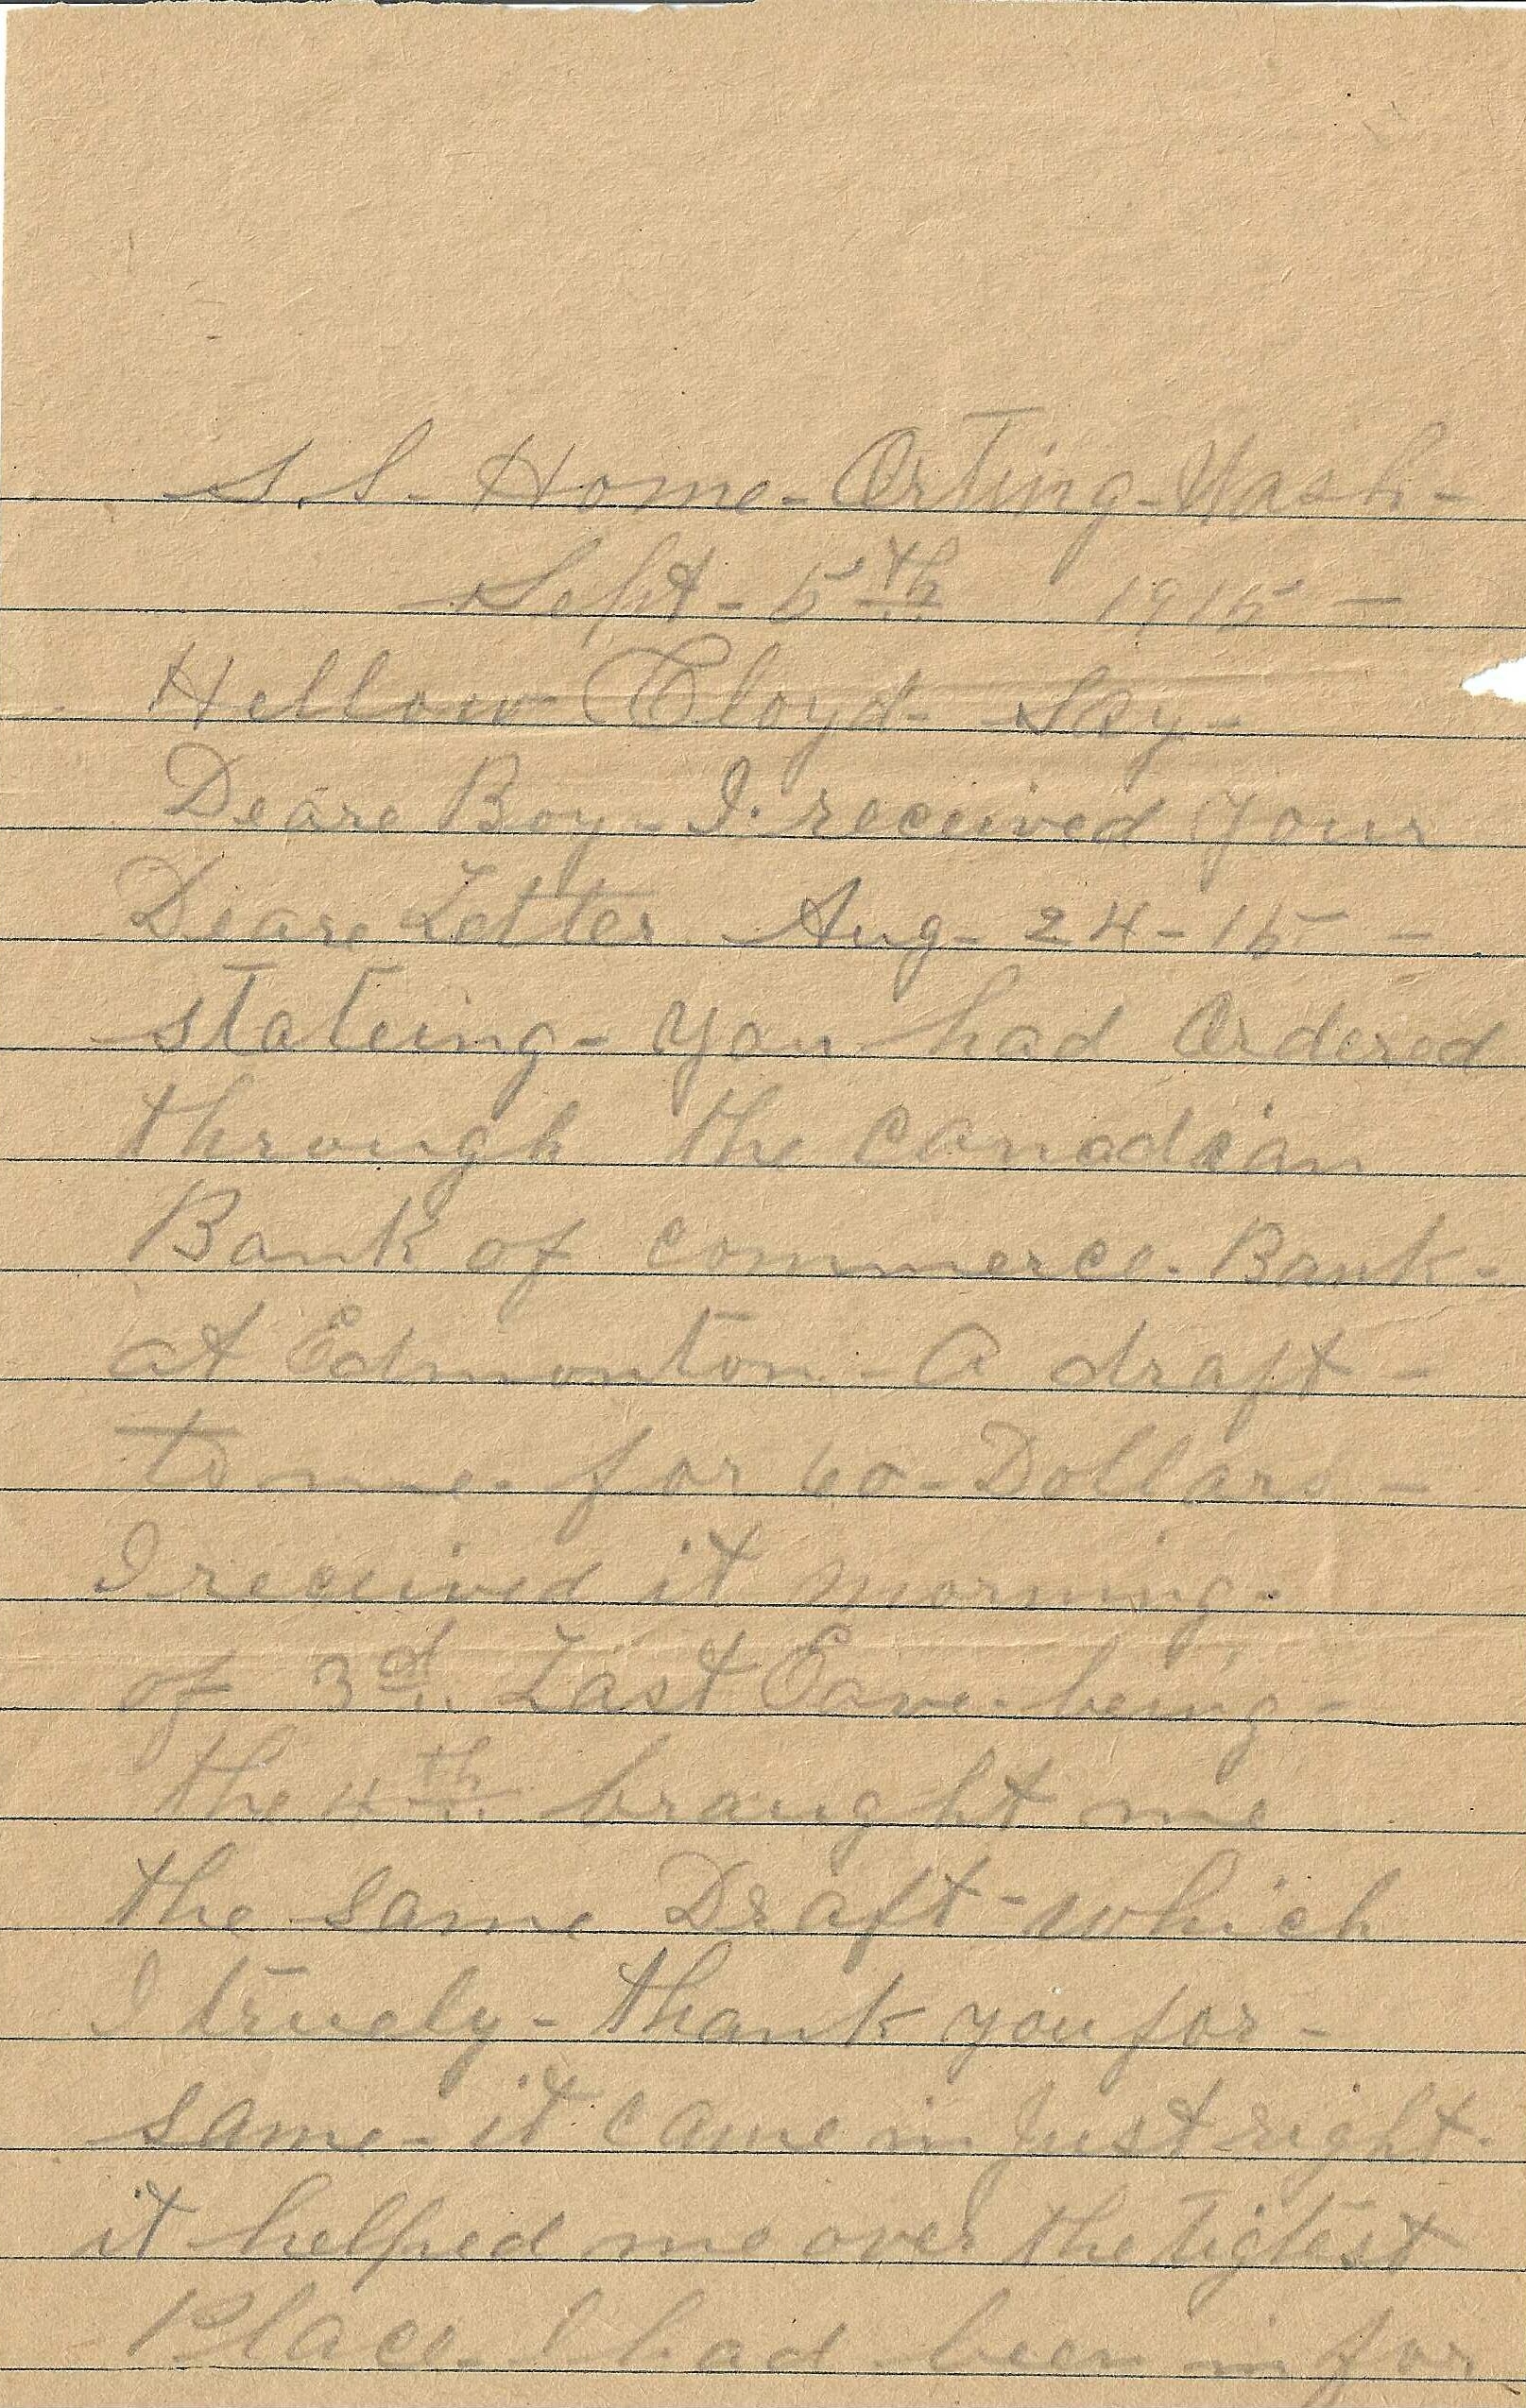 S.S. Home - Orting - Wash -
Sept - 5th 1915 -
Hellow Cloyd - Say -
Deare Boy - I. received your
Deare Letter Aug - 24 - 15 -
stateing - you had Ordered
through the canadian
Bank of commerce. Bank -
at Edmonton - A draft -
to me. for 60 - Dollars -
I received it morning -
of 3d Last Eave. being -
the 4th braught me
the same Draft - which
I truely - thank you for -
same - it came in Just right.
it helped me over the tigtest
Place I had been in for